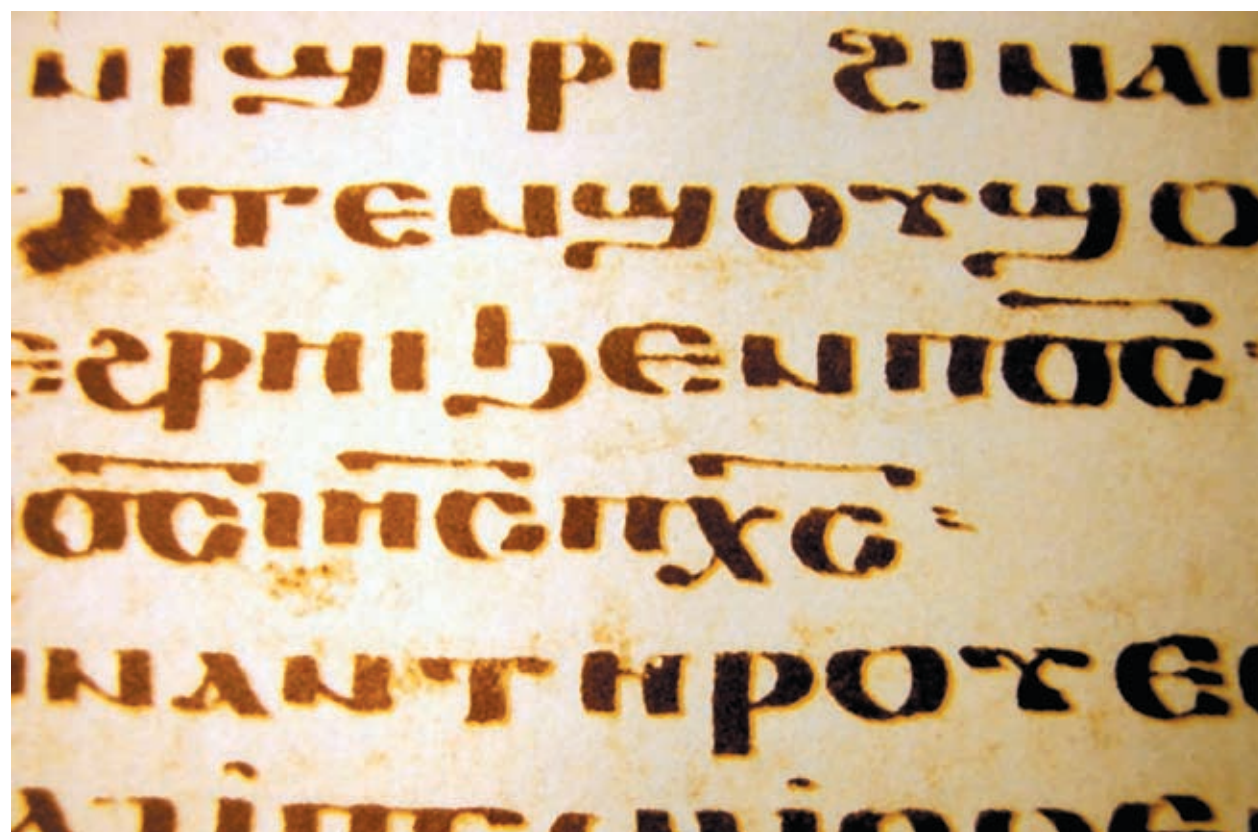 ⲛⲓϣⲏⲣⲓ ϩⲓⲛⲁ
ⲛⲧⲉⲛϣⲟⲩϣⲟ
ⲉϩⲣⲏⲓϧⲉⲛⲡⲟ̅ⲥ̅
ⲟ̅ⲥ̅ⲓⲏ̅ⲥ̅ⲡⲭ̅ⲥ̅
ⲛⲁⲛⲧⲏⲣⲟⲩⲉ